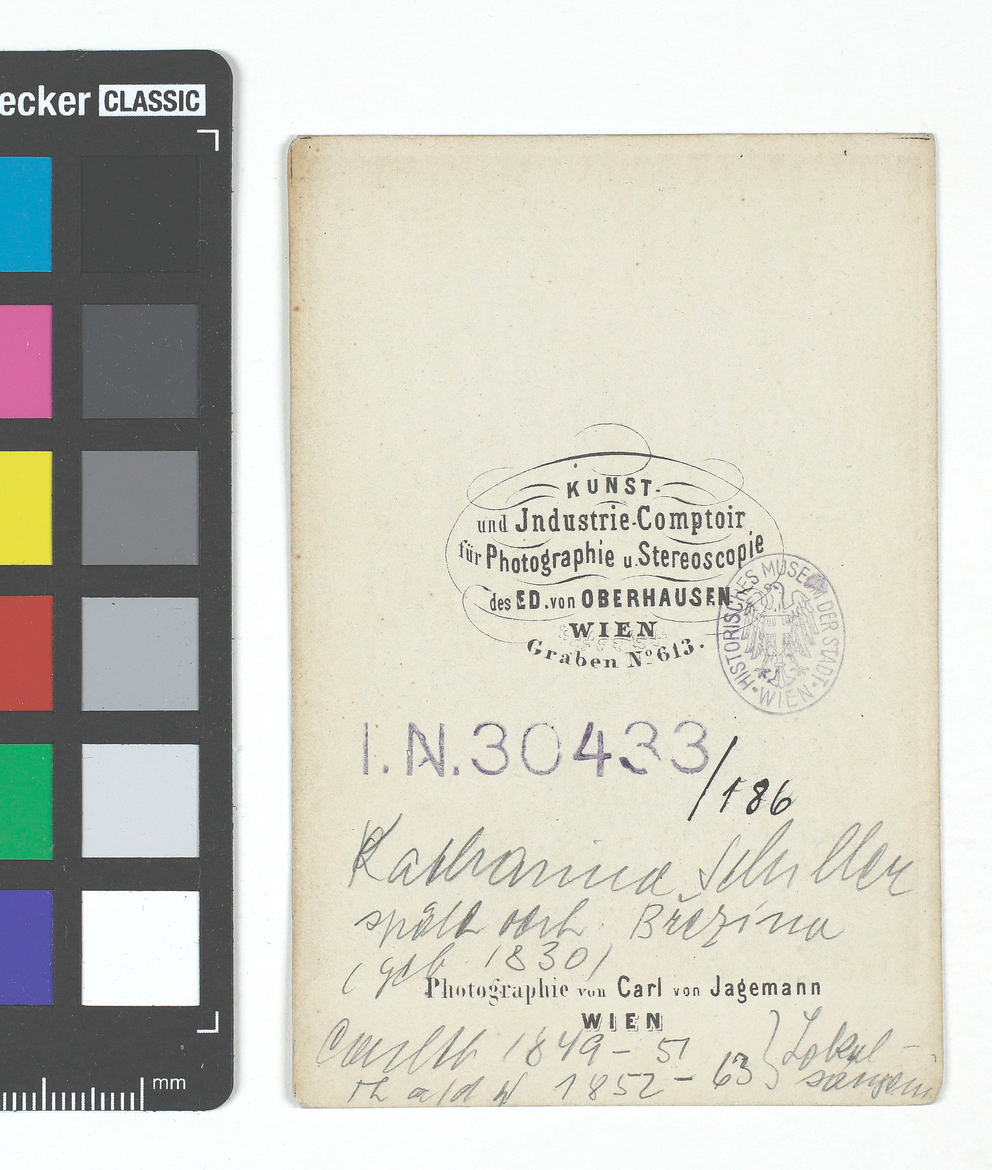 ecker CLASSIC
KUNST-
und Jndustrie-Comptoir
für Photographie u. Stereoscopie
des ED. von OBERHAUSEN
WIEN
Graben No 613.
HISTORISCHES MUSEUM DER STADT • WIEN •
I.N.30433/186
Katharina Schiller
später verh. Březina
(geb. 1830)
Photographie von Carl von Jagemann
WIEN
1849 - 51
Th a/d W 1852 - 63 } Lokal-
sängerin
mm